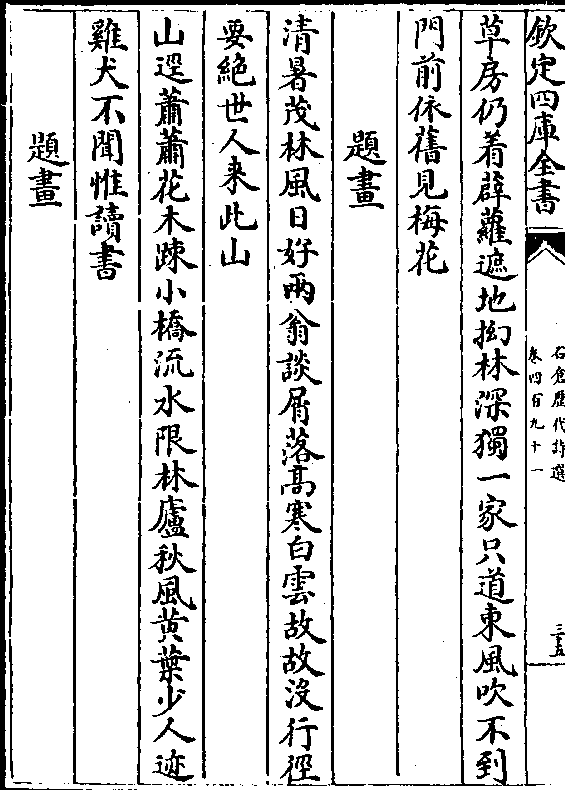 欽定四庫全書
石倉歴代詩選
卷四百九十一
三五
草房仍着薜蘿遮地拗林深獨一家只道東風吹不到
門前依舊見梅花
題畫
清暑茂林風日好兩翁談屑落高寒白雲故故沒行徑
要絶世人来此山
山逕蕭蕭花木踈小橋流水限林廬秋風黄葉少人迹
雞犬不聞惟讀書
題畫